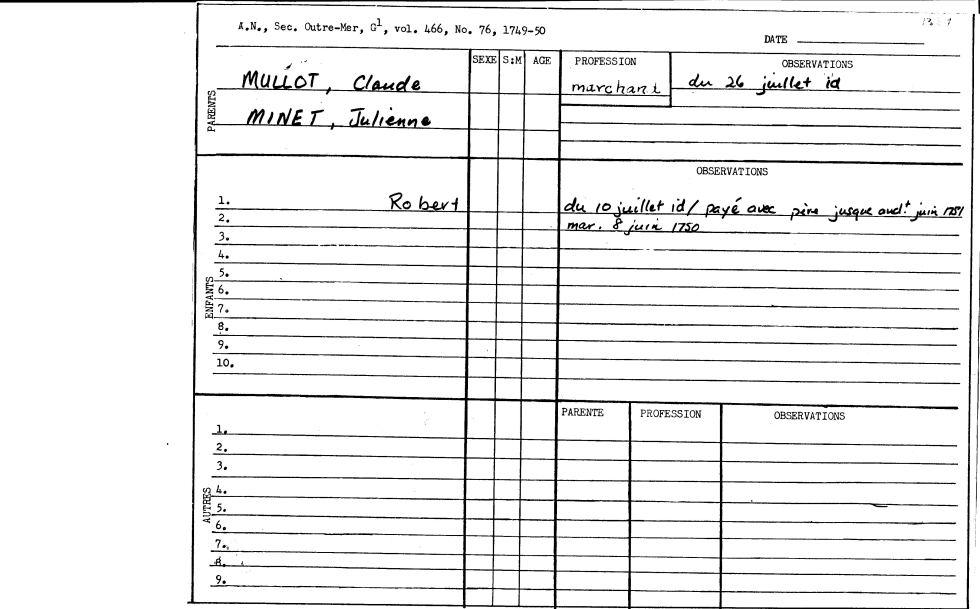 A.N., Sec. Outre-Mer, G1, vol. 466, No. 76, 1749-50
DATE
SEXE S:M AGE PROFESSION OBSERVATIONS
PARENTS
MULLOT, Claude marchant du 26 juillet id
MINET, Julienne
OBSERVATIONS
ENFANTS
1. Robert du 10 juillet id/ payé avec père jusque audt juin 1751
2. mar. 8 juin 1750
3.
4.
5.
6.
7.
8.
9.
10.
PARENTE PROFESSION OBSERVATIONS
AUTRES
1.
2.
3.
4.
5.
6.
7.
8.
9.